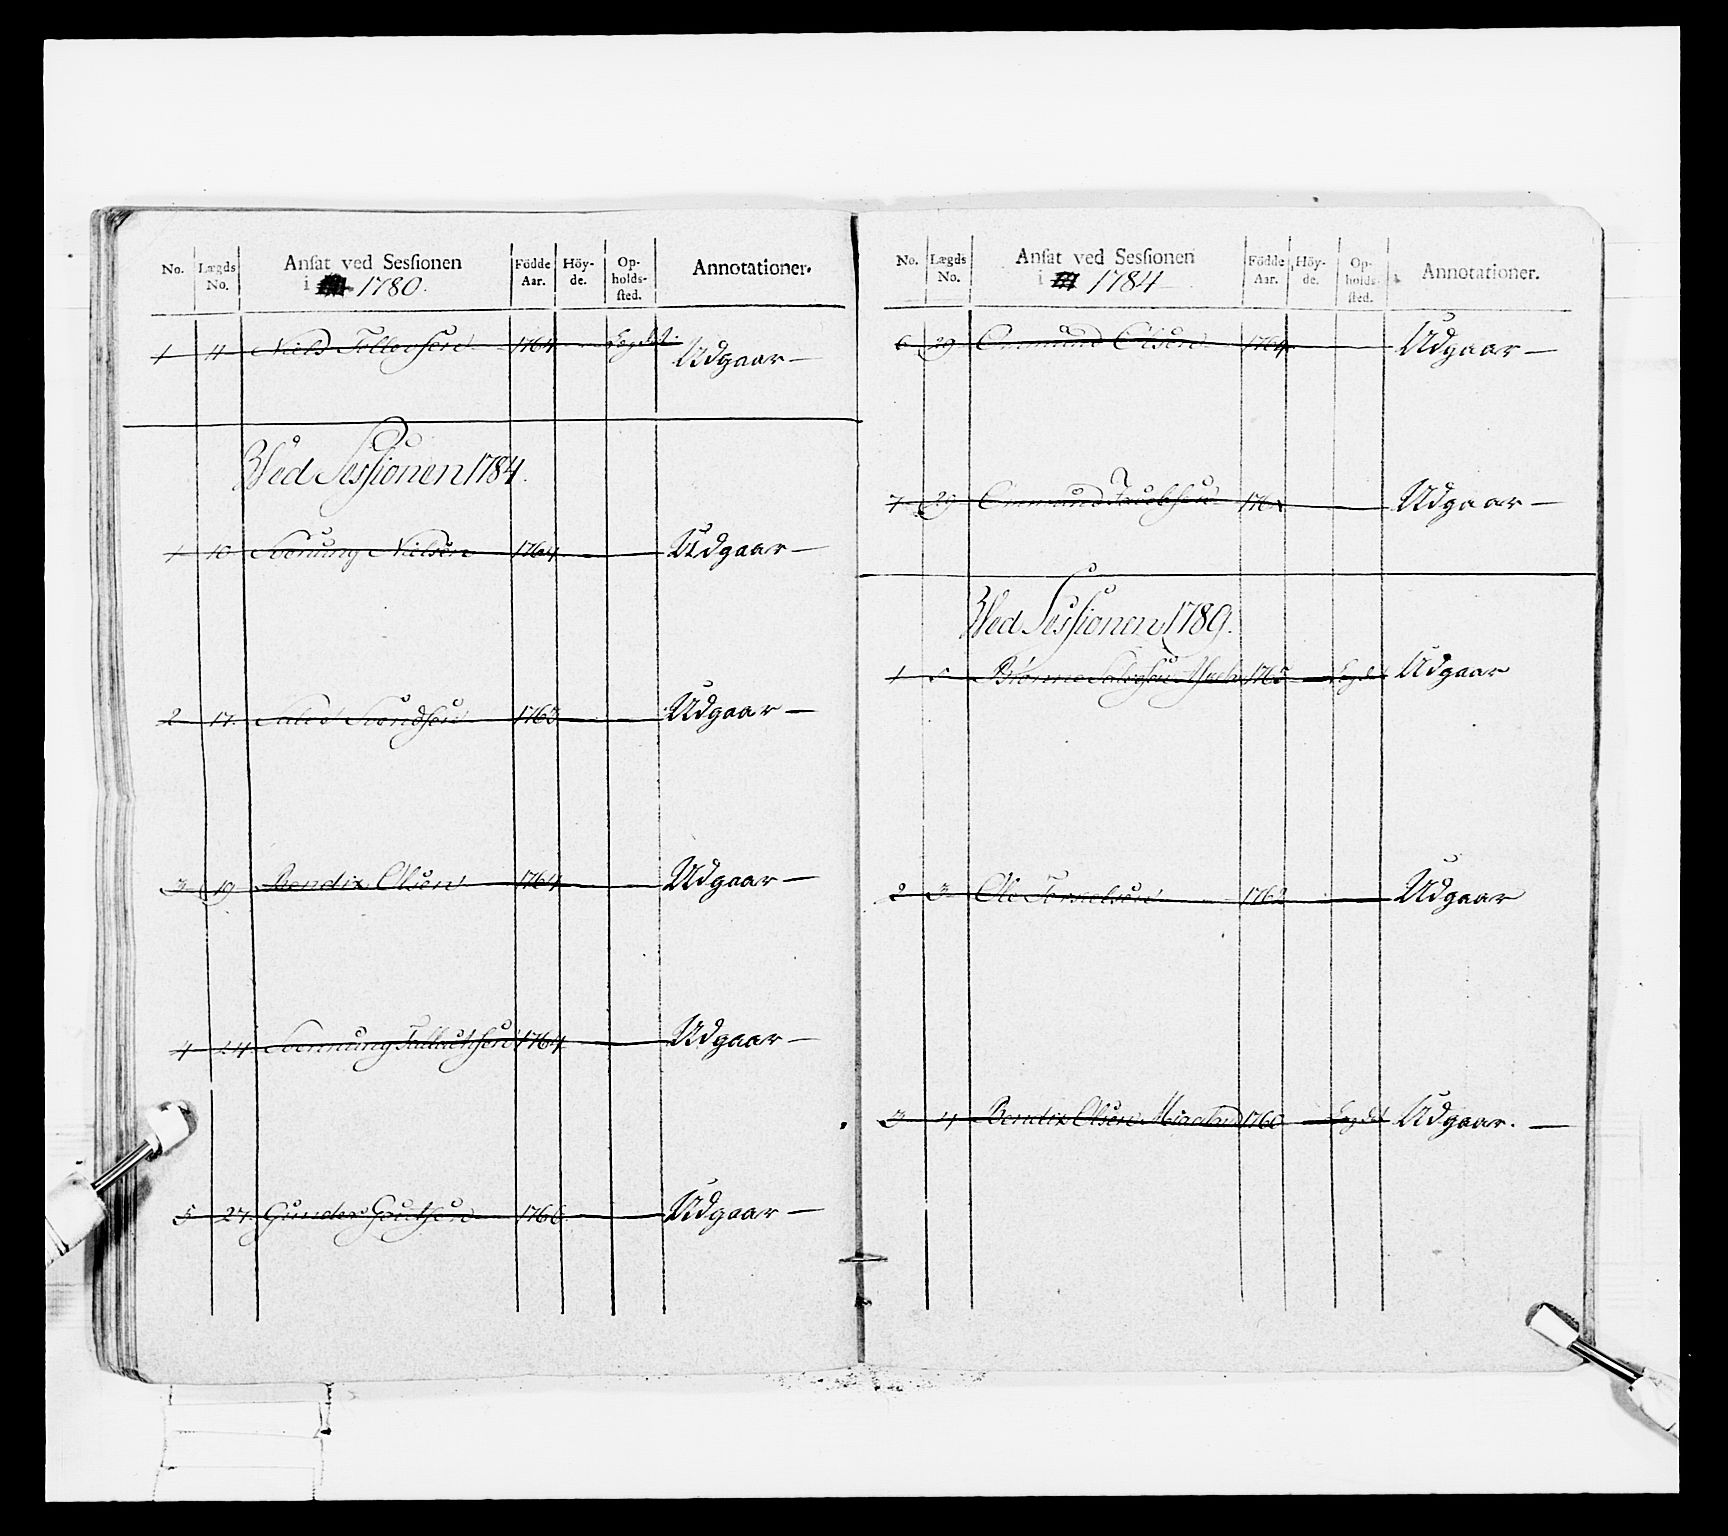 No. Lægds No. Ansat ved Sessionen i 1780. Födde Aar. Höyde. Opholdssted. Annotationer.
1 11 Niels Tollevsen 1764 Udgaar —
Ved Sessionen 1784.
1 10 Svenung Nielsen 1764 Udgaar —
2 17. 1763 Udgaar —
3 19 Bendix Olsen 1764 Udgaar —
4 24 Svennung 1764 Udgaar —
5 27. Gunder 1766 Udgaar —
No. Lægds No. Ansat ved Sessionen i 1784 Födde Aar. Höyde. Opholdssted. Annotationer.
6 29 Ommund Olsen 1764 Udgaar —
7 29 Ommund Jacobsen Udgaar —
Ved Sessionen 1789.
1 5 1765 Udgaar
2 3 Ole 1762 Udgaar
3 4 Bendix Olsen 1766 Udgaar. —